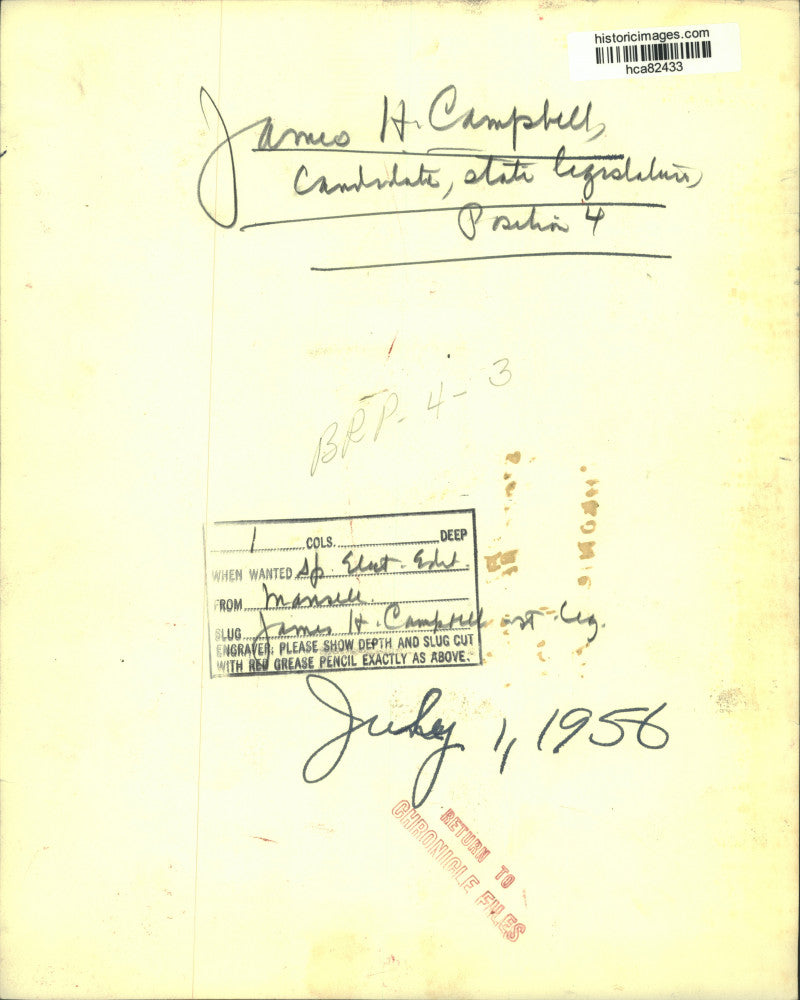 historicimages.com
hca82433
James H. Campbell,
Candidate, state legislature,
Position 4
BRP-4-3
1 COLS. DEEP
WHEN WANTED Sp. Elect. Edit.
FROM Mansell
SLUG James H. Campbell st. leg.
ENGRAVER: PLEASE SHOW DEPTH AND SLUG CUT
WITH RED GREASE PENCIL EXACTLY AS ABOVE.
July 1, 1956
RETURN TO
CHRONICLE FILES